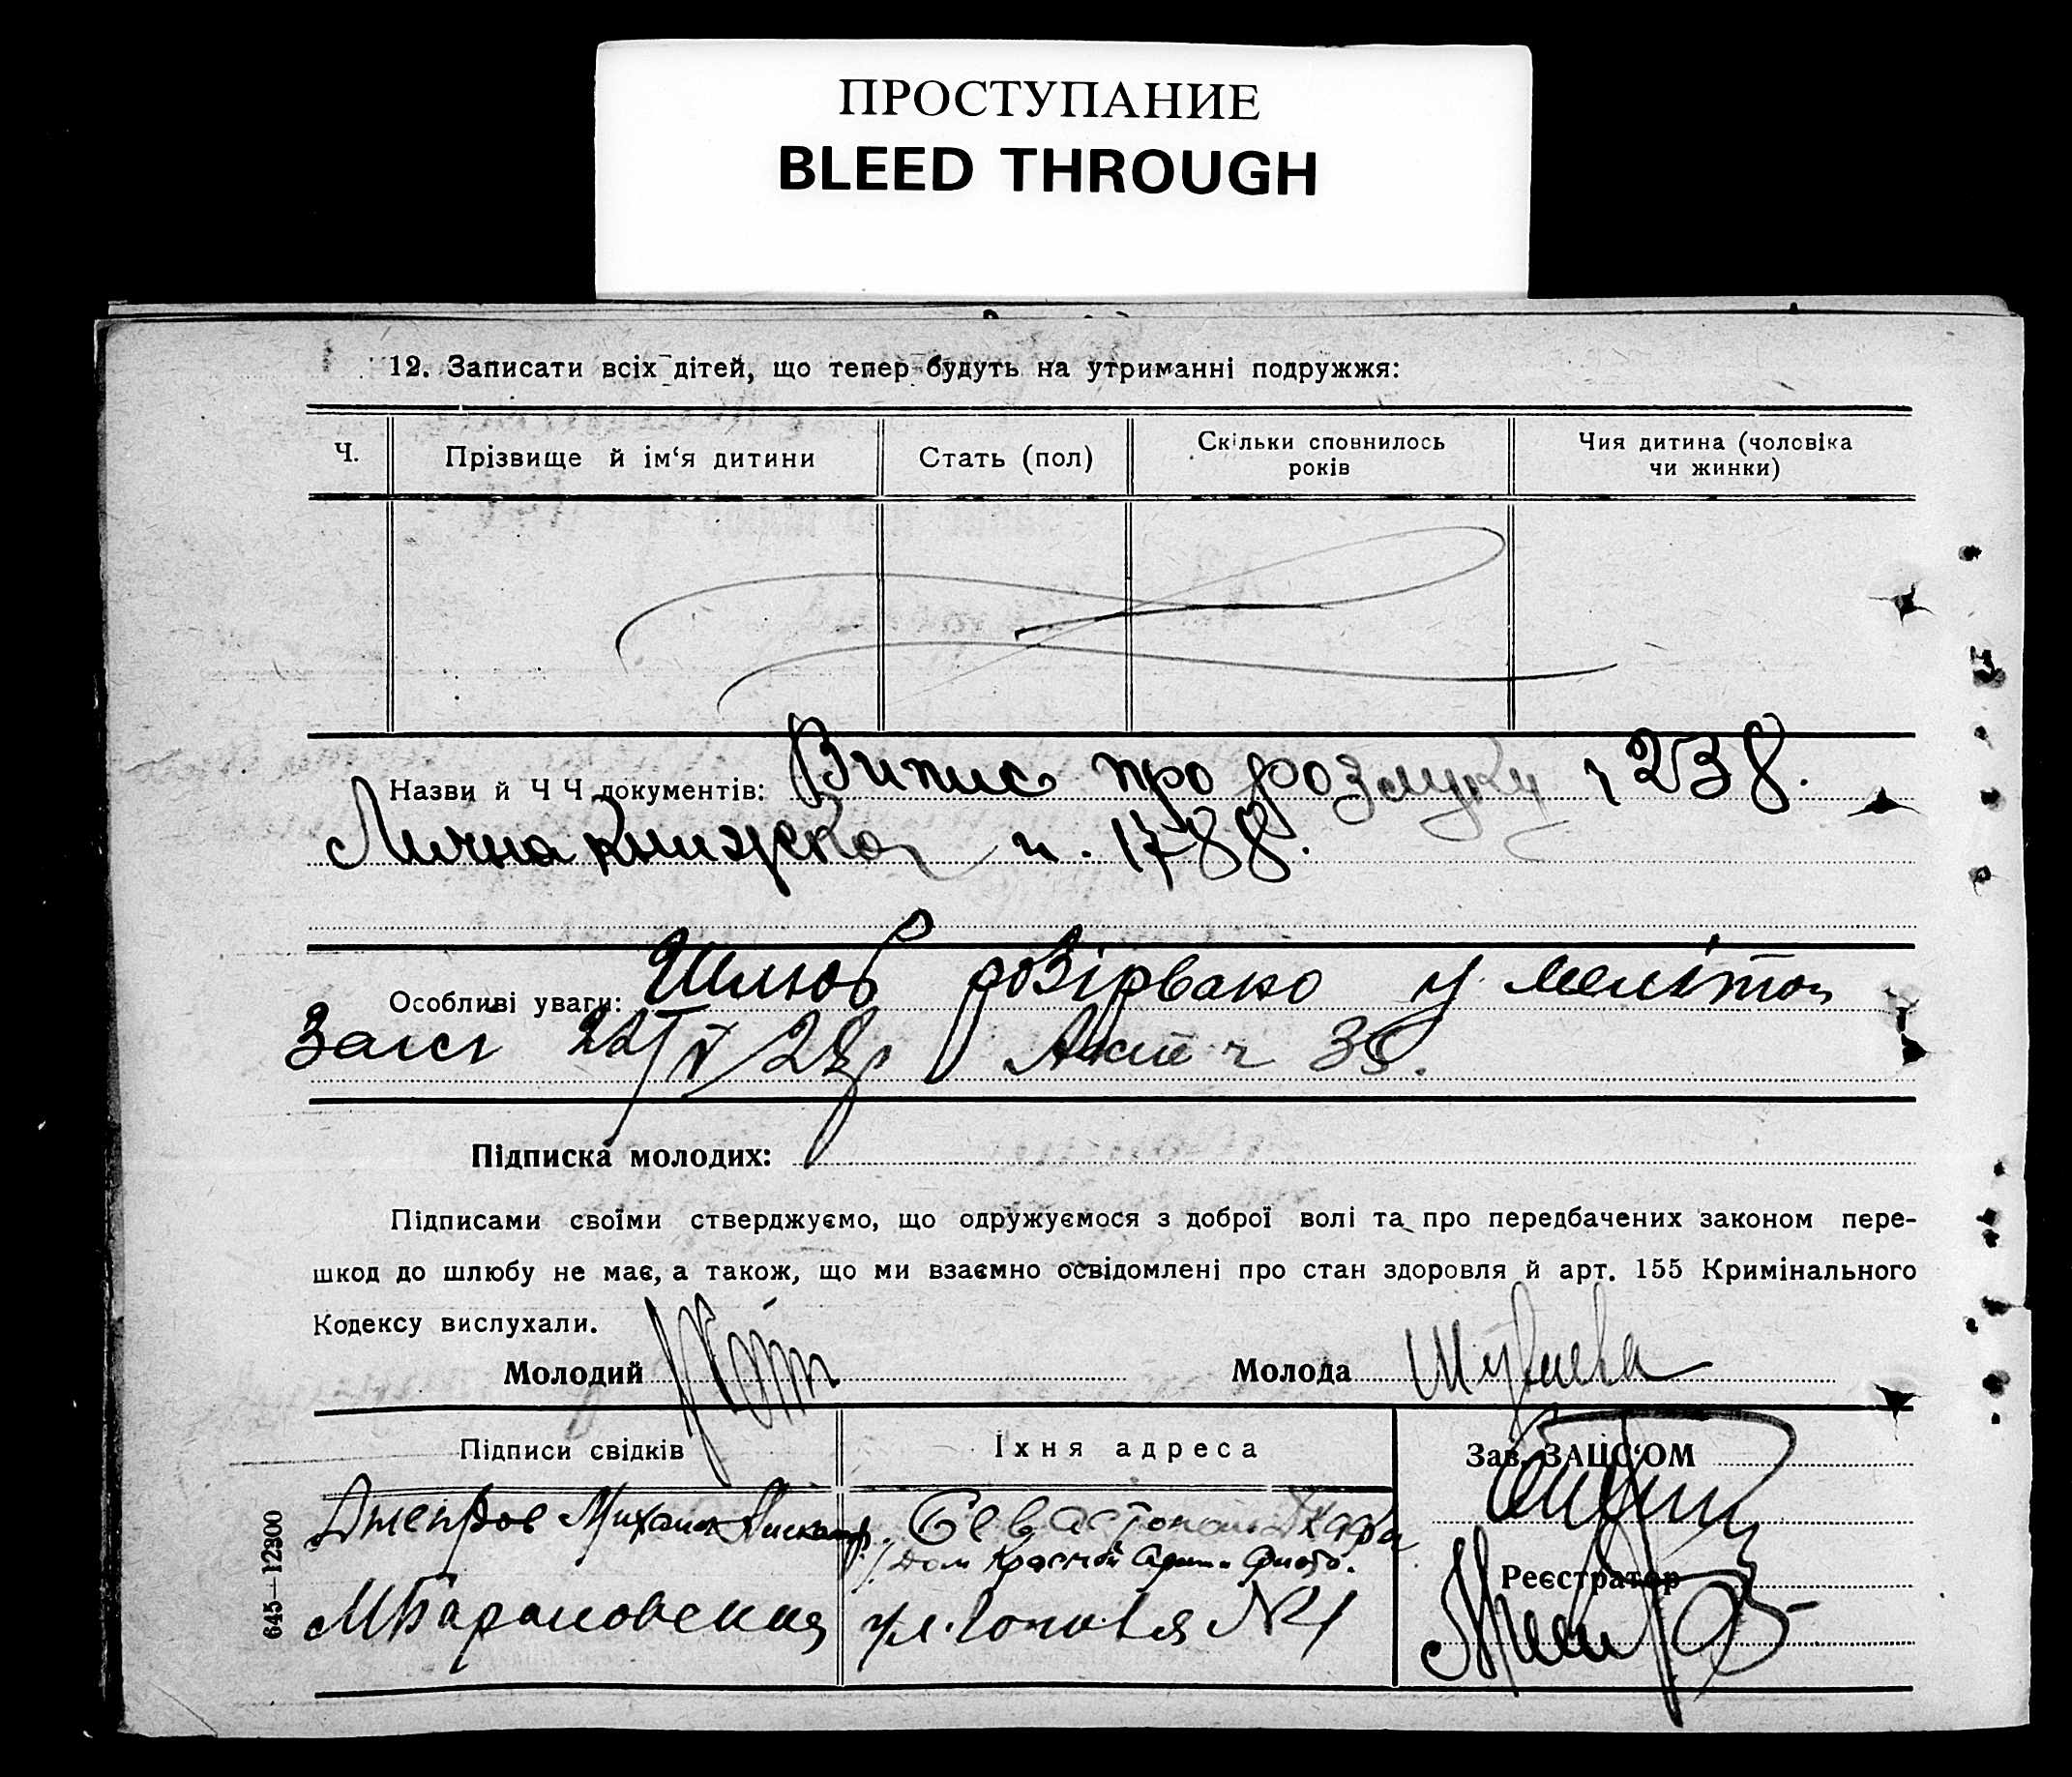 ПРОСТУПАНИЕ
BLEED THROUGH
12. Записати всіх дітей, що тепер будуть на утриманні подружжя:
Ч. Прізвище й ім'я дитини Стать (пол) Скільки сповнилось років Чия дитина (чоловіка чи жинки)
Назви й Ч Ч документів: Випис про розлуку ч 238.
Лична книжска н. 1788.
Особливі уваги: Шлюб розірвано у меліто
Загсі 22/V 28р Акт ч 35.
Підписка молодих:
Підписами своїми стверджуємо, що одружуємося з доброї волі та про передбачених законом пере-
шкод до шлюбу не має, а також, що ми взаємно освідомлені про стан здоровля й арт. 155 Кримінального
Кодексу вислухали.
Молодий Молода
Підписи свідків Їхня адреса Зав. ЗАЦС'ОМ
Михаил Севастополь
Дом Красной Арм. и Флота.
Реєстратор
МБарановская ул. №1
645—12300